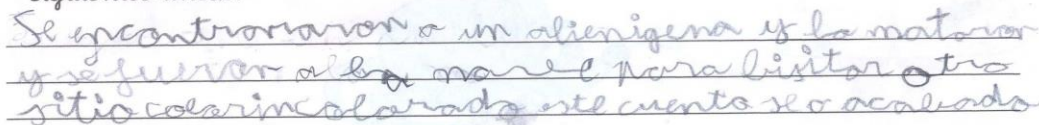 Se encontroraron a un alienigena y lo mataron
y se fueron a la nave para bisitar otro
sitio colorin colorado este cuento se a acabado